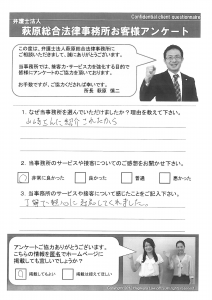 Confidential client questionnaire
弁護士法人
萩原総合法律事務所お客様アンケート
この度は、弁護士法人萩原総合法律事務所に
ご相談いただきまして、誠にありがとうございます。
当事務所では、接客力・サービス力を強化する目的で
皆様にアンケートのご協力を頂いております。
お手数ですが、ご協力くだされば幸いです。
所長 萩原 慎二
1. なぜ当事務所を選んでいただけましたか？理由を教えて下さい。
紹介されたから
2. 当事務所のサービスや接客についてのご感想をお聞かせ下さい。
非常に良かった
良かった
普通
悪かった
3. 当事務所のサービスや接客について感じたことをご記入下さい。
丁寧で
対応してくれました。
アンケートご協力ありがとうございます。
こちらの情報を匿名でホームページに
掲載しても宜しいでしょうか？
掲載してもよい
掲載は控えてほしい